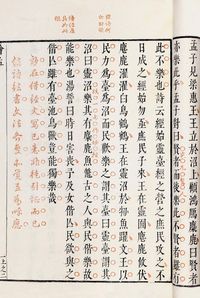 孟子見梁惠王王立於沼上顧鴻鴈麋鹿曰賢者
亦樂此乎孟子對曰賢者而後樂此不賢者雖有
此不樂也詩云經始靈臺經之營之庶民攻之不
日成之經始勿亟庶民子來王在靈囿麀鹿攸伏
麀鹿濯濯白鳥鶴鶴王在靈沼於牣魚躍文王以
民力為臺為沼而民歡樂之謂其臺曰靈臺謂其
沼曰靈沼樂其有麋鹿魚鼈古之人與民偕樂故
能樂也湯誓曰時日害喪予及女偕亡民欲與之
偕亡雖有臺池鳥獸豈能獨樂哉